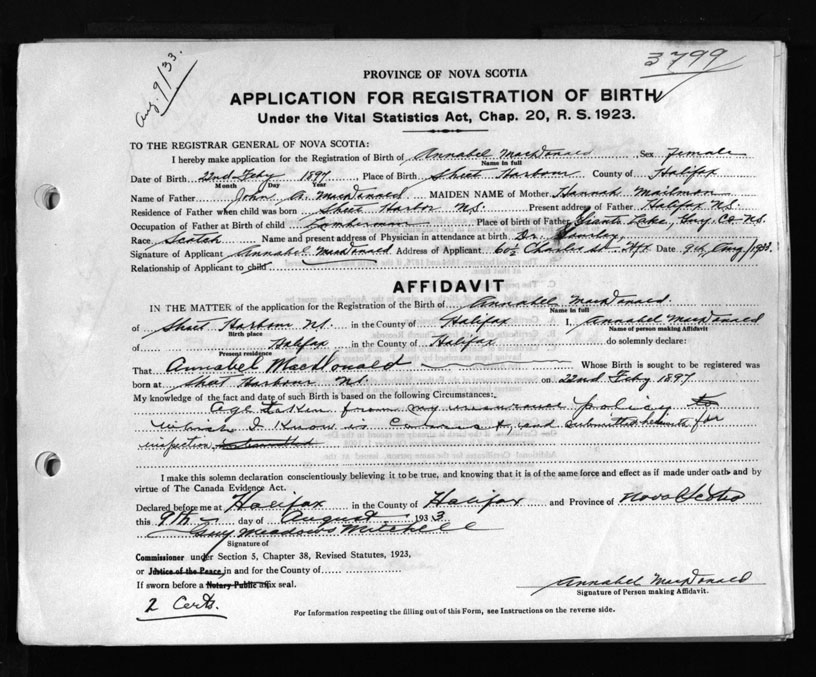 Aug. 9/33.
3799
PROVINCE OF NOVA SCOTIA
APPLICATION FOR REGISTRATION OF BIRTH
Under the Vital Statistics Act, Chap. 20, R. S. 1923.
TO THE REGISTRAR GENERAL OF NOVA SCOTIA:
I hereby make application for the Registration of Birth of Annabel MacDonald Sex Female
Name in full
Date of Birth 22nd Feby 1897, Place of Birth Sheet Harbour County of Halifax
Month Day Year
Name of Father John A. MacDonald MAIDEN NAME of Mother Hannah Mailman
Residence of Father when child was born Sheet Harbor N.S. Present address of Father Halifax N.S.
Occupation of Father at Birth of child Lumberman Place of Birth of Father Lake, Guy. Co. N.S.
Race Scotch Name and present address of Physician in attendance at birth Dr.
Signature of Applicant Annabel MacDonald Address of Applicant 60½ Charles St. Hfx Date 9th Aug/1933.
Relationship of Applicant to child
AFFIDAVIT
IN THE MATTER of the application for the Registration of the Birth of Annabel MacDonald
Name in full
of Sheet Harbour N.S. in the County of Halifax I, Annabel MacDonald
Birth place Name of person making Affidavit
of Halifax in the County of Halifax do solemnly declare:
Present residence
That Annabel MacDonald Whose Birth is sought to be registered was
born at Sheet Harbour N.S. on 22nd Feby 1897.
My knowledge of the fact and date of such Birth is based on the following Circumstances:
Age taken from my insurance policy
which I know is and submitted for
inspection
I make this solemn declaration conscientiously believing it to be true, and knowing that it is of the same force and effect as if made under oath and by
virtue of The Canada Evidence Act.
Declared before me at Halifax in the County of Halifax and Province of Nova Scotia
this 9th day of August 1933
Guy Meadows Mitchell
Signature of
Commissioner under Section 5, Chapter 38, Revised Statutes, 1923,
or Justice of the Peace, in and for the County of
If sworn before a Notary Public affix seal.
Annabel MacDonald
Signature of Person making Affidavit.
2 Certs.
For Information respecting the filling out of this Form, see Instructions on the reverse side.